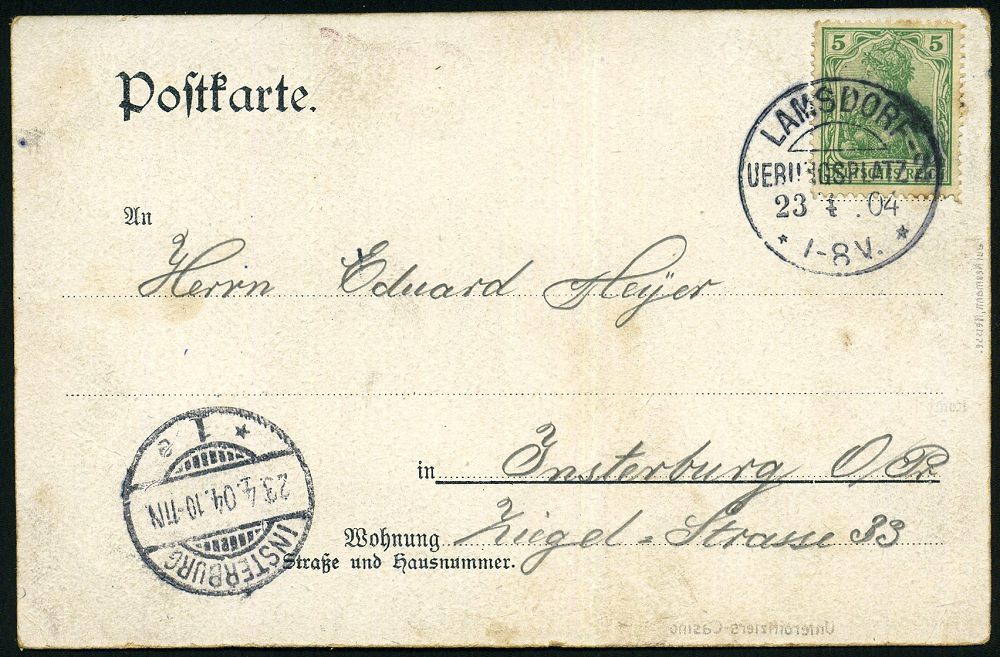 Postkarte.
5 5
DEUTSCHES REICH
LAMSDORF-
UEBUNGSPLATZ
23 4 .04
* 7-8V. *
An
Herrn Eduard Meyer
in Insterburg O/Pr
Wohnung Ziegel-Strasse 33
Straße und Hausnummer.
INSTERBURG
23.4.04.10-11N.
* 1 e
Unteroffiziers-Casino